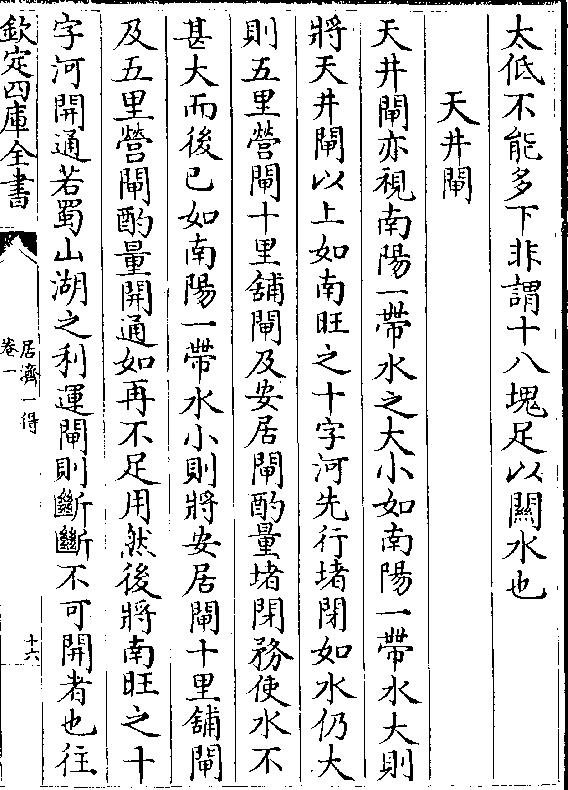 太低不能多下非謂十八塊足以關水也
天井閘
天井閘亦視南陽一帶水之大小如南陽一帶水大則
將天井閘以上如南旺之十字河先行堵閉如水仍大
則五里營閘十里舖閘及安居閘酌量堵閉務使水不
甚大而後已如南陽一帶水小則將安居閘十里舖閘
及五里營閘酌量開通如再不足用然後將南旺之十
字河開通若蜀山湖之利運閘則斷斷不可開者也往
欽定四庫全書
居濟一得
卷一
十六